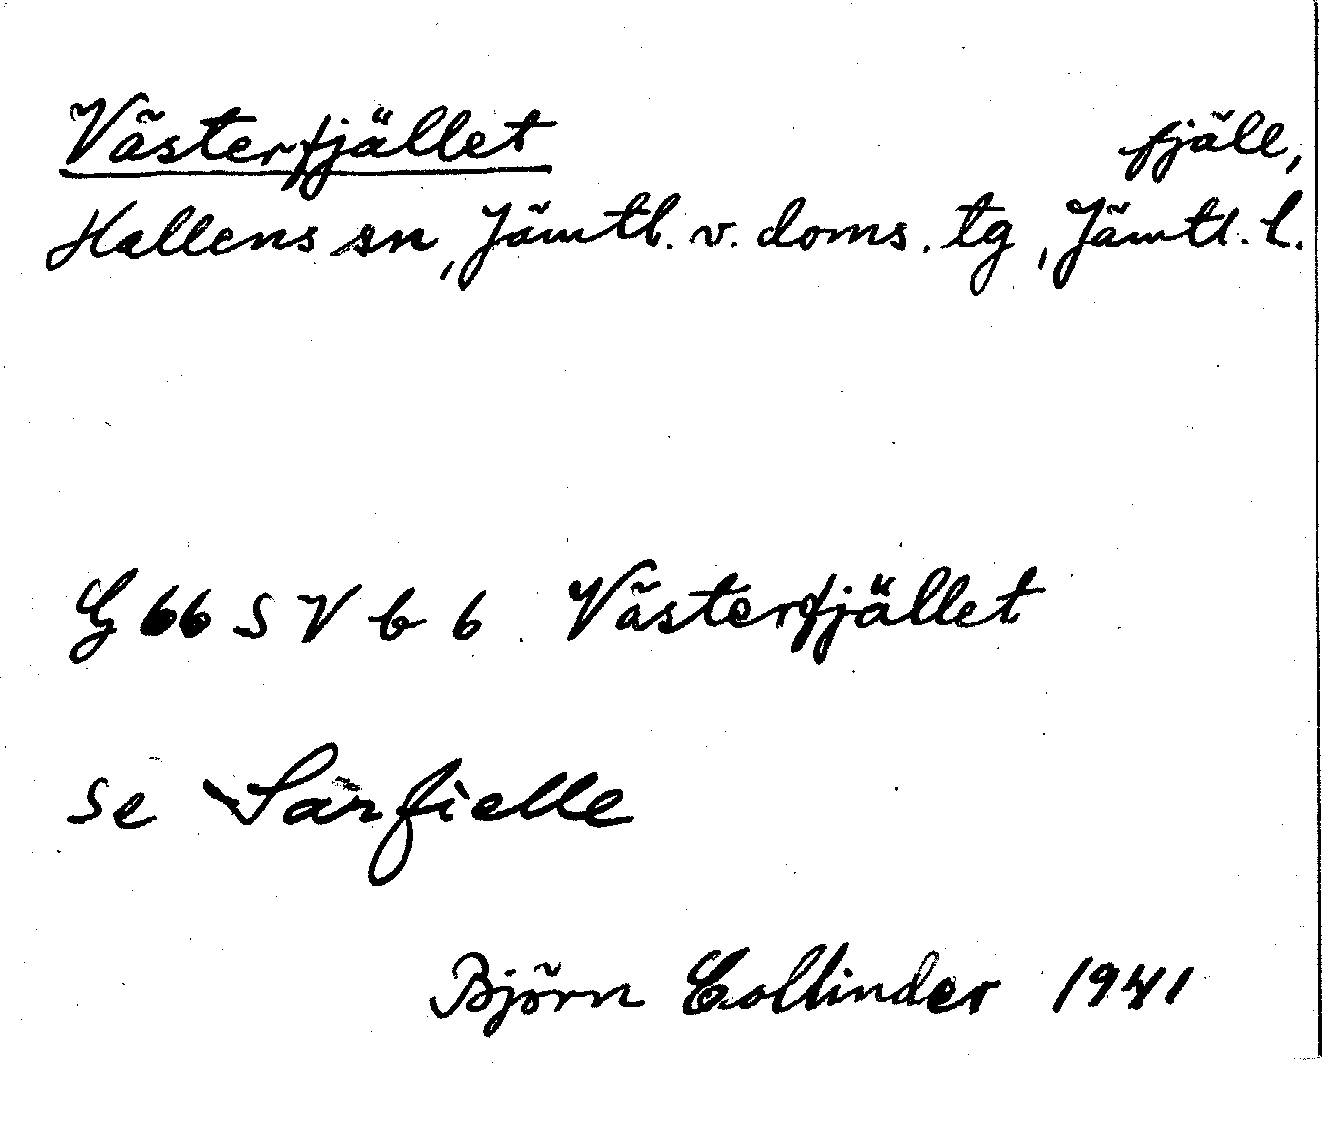 Västerfjället fjäll,
Hallens sn, Jämtl. v. doms. tg, Jämtl. l.
G 66 S V b 6 Västerfjället
se Särfielle
Björn Collinder 1941